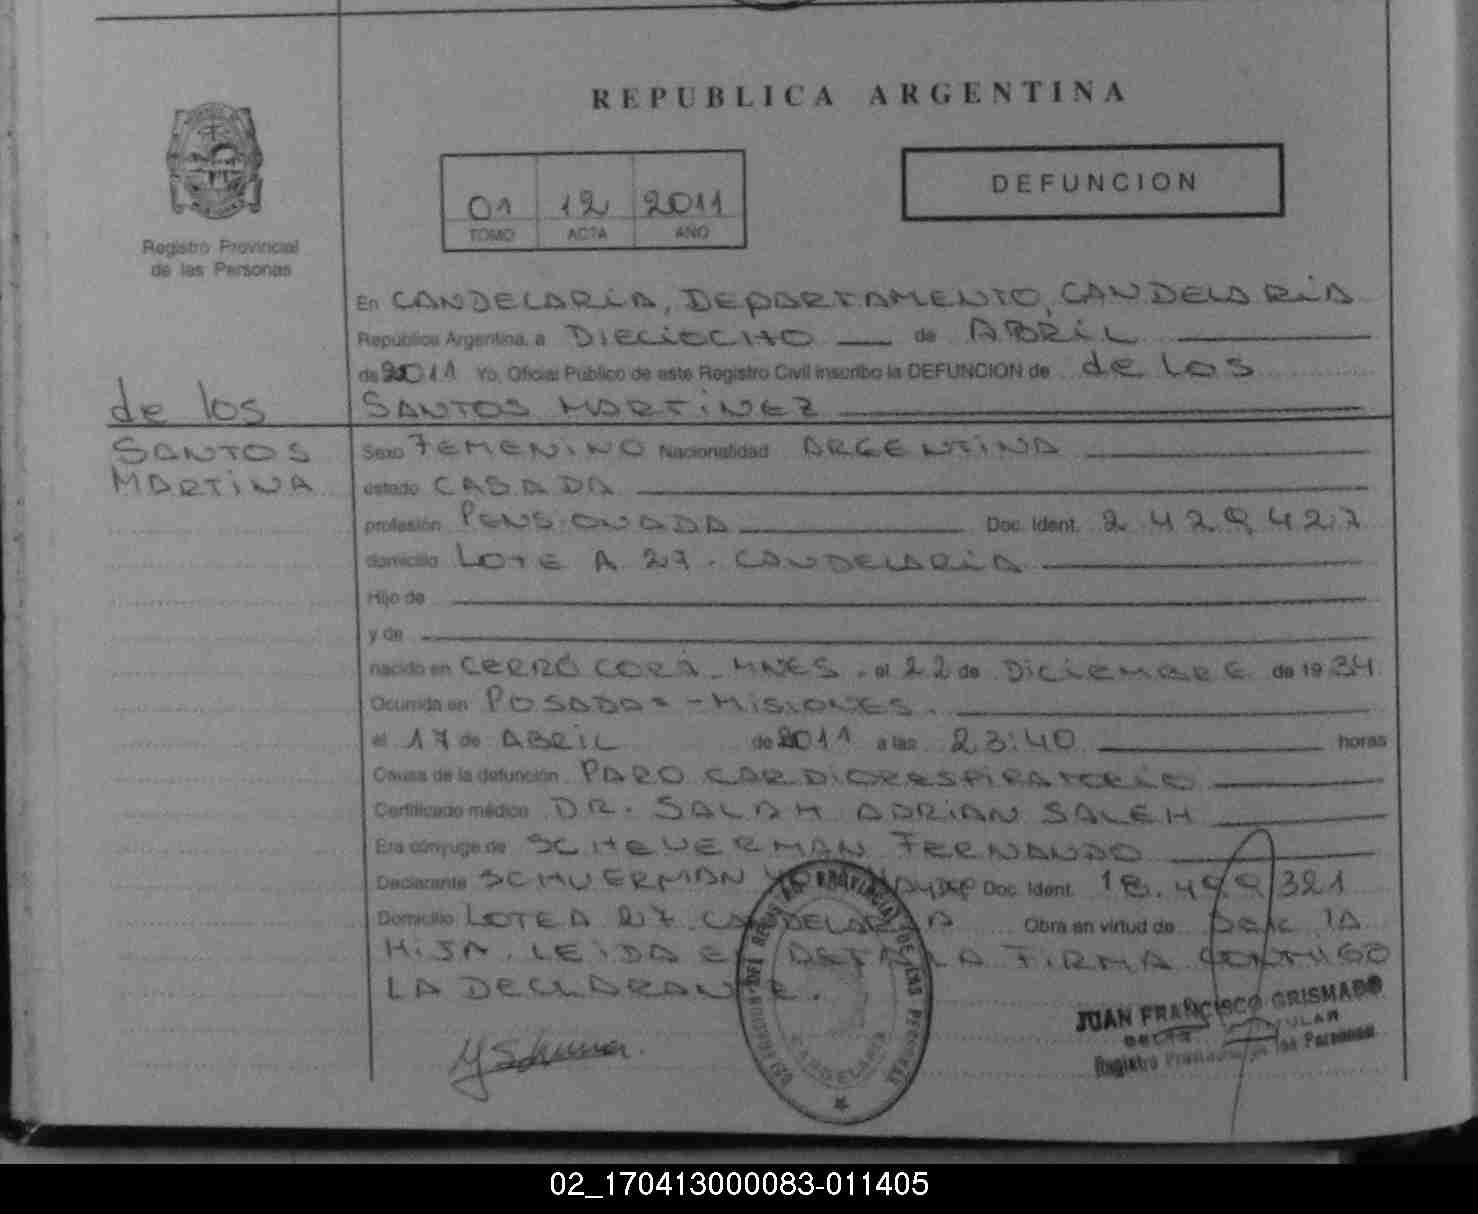 REPUBLICA ARGENTINA
01 12 2011
TOMO ACTA AÑO
DEFUNCION
Registro Provincial
de las Personas
En CANDELARIA, DEPARTAMENTO, CANDELARIA
República Argentina, a DIECIOCHO de ABRIL
de 2011 Yo, Oficial Público de este Registro Civil inscribo la DEFUNCION de de los
SANTOS MARTINEZ
de los
SANTOS
MARTINA
Sexo FEMENINO Nacionalidad ARGENTINA
estado CASADA
profesión PENSIONADA Doc. Ident. 2.429.427
domicilio LOTE A 27. CANDELARIA
Hijo de
y de
nacido en CERRO CORÁ - MNES. el 22 de DICIEMBRE de 1934
Ocurrida en POSADAS - MISIONES.
el 17 de ABRIL de 2011 a las 23:40 horas
Causa de la defunción PARO CARDIORRESPIRATORIO
Certificado médico DR. SALAH ADRIAN SALEH
Era cónyuge de SCHEUERMAN FERNANDO
Declarante SCHUERMAN Doc. Ident. 18.499.321
Domicilio LOTE A 27 CANDELARIA Obra en virtud de SER LA
HIJA. LEIDA EL ACTA LA FIRMA CONMIGO
LA DECLARANTE.
JUAN FRANCISCO GRISMADO
Registro Provincial de las Personas
CANDELARIA
02_170413000083-011405